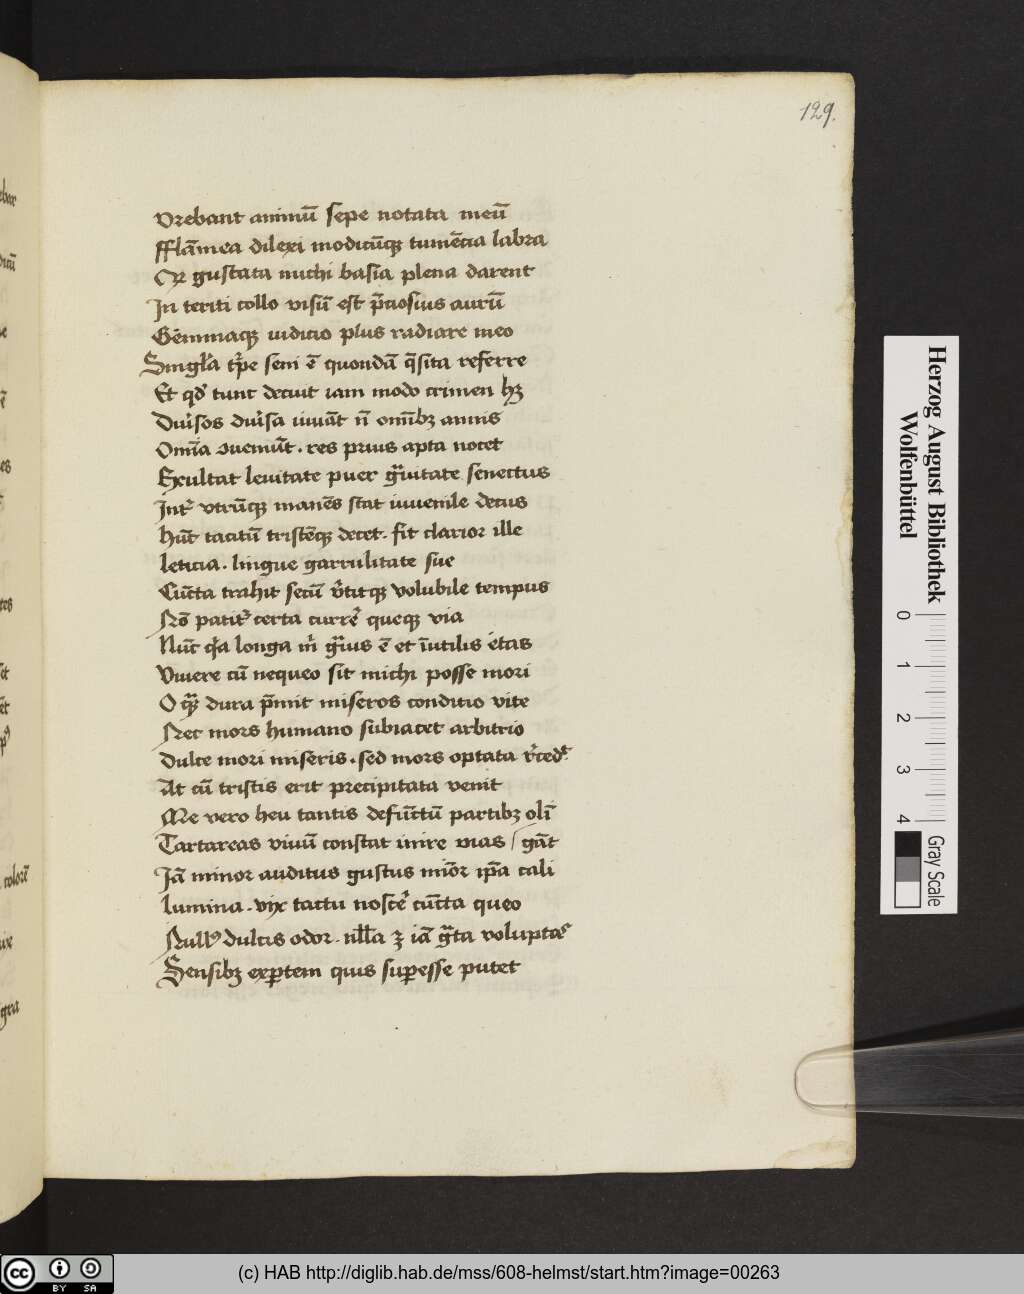 129.
vrebant animū sepe notata meū
fflāmea dilexi modicūqꝫ tumēcia labra
Qꝛ gustata michi basīa plena darent
In teriti collo visū est p̄ciosius aurū
Gēmmaqꝫ iudicio plus radiare meo
Singl̄a tꝑe seni ē quondā q̄sita referre
Et qđ tunc decuit iam modo crimen hꝫ
Duūsos duūsa iuuāt n̄ om̄ibꝫ annis
Omīa ꝯueniūt . res prius apta nocet
Exultat leuitate puer gͣuitate senectus
Int͛ vtrūqꝫ manēs stat iuuenile decus
hūc tacitū tristēqꝫ decet . fit clarior ille
leticia . lingue garrulitate sue
Cūcta trahit secū v͛titqꝫ volubile tempus
Nō patit͛ certa curre͛ queqꝫ via
Nūc qͣ longa m̄ gͣuis ē et īutilis etas
Viuere cū nequeo sit michi posse mori
O qͣꝫ dura p̄mit miseros conditio vite
Nec mors humano subiacet arbitrio
Dulce mori miseris . sed mors optata r͛cedͭ
At cū tristis erit precipitata venit
Me vero heu tantis defūctū partibꝫ olī
Tartareas viuū constat inire vias / gāt
Iā minor auditus gustus miōr ip̄a cali
lumina . vix tactu nosce͛ cūcta queo
Nullꝰ dulcis odor . nll̄a ꝫ iā gͣta volupta͛
Sensibꝫ exꝑtem quis suꝑesse putet
Herzog August Bibliothek
Wolfenbüttel
0 1 2 3 4
Gray Scale
cc BY SA
(c) HAB http://diglib.hab.de/mss/608-helmst/start.htm?image=00263